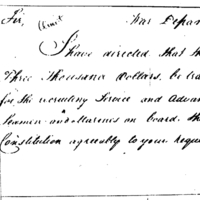 Sir, War Depar
I have directed that th
Three Thousand Dollars, be tra
for the recruiting Service and Advan
Seamen and Marines on board. th
Constitution agreeably to your requ